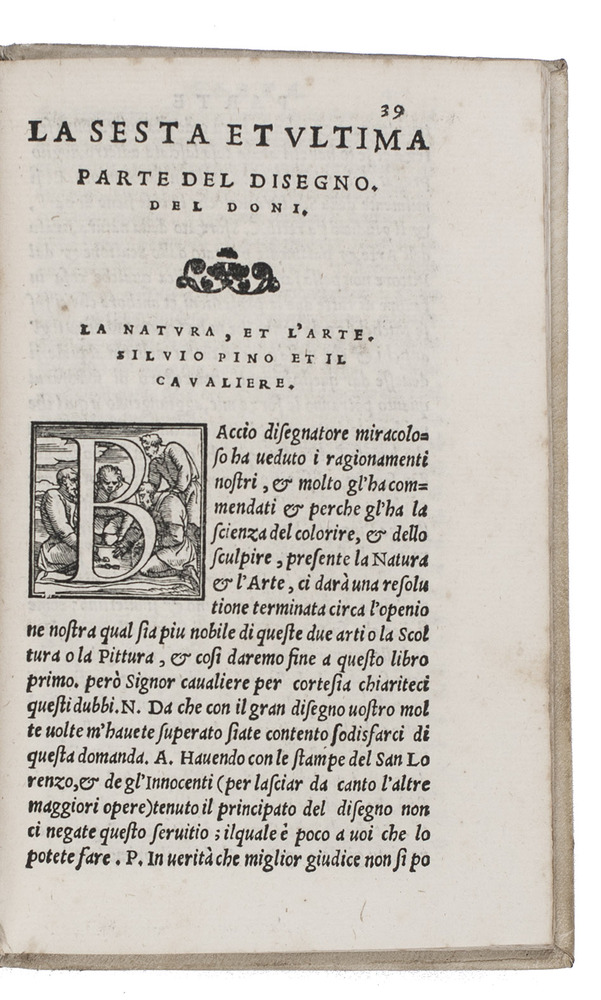 39
LA SESTA ET VLTIMA
PARTE DEL DISEGNO.
DEL DONI.
LA NATVRA, ET L'ARTE.
SILVIO PINO ET IL
CAVALIERE.
BAccio diſegnatore miracolo=
ſo ha ueduto i ragionamenti
noſtri, & molto gl'ha com=
mendati & perche gl'ha la
ſcienza del colorire, & dello
ſculpire, preſente la Natura
& l'Arte, ci darà una reſolu
tione terminata circa l'openio
ne noſtra qual ſia piu nobile di queſte due arti o la Scol
tura o la Pittura, & coſi daremo fine a queſto libro
primo. però Signor caualiere per corteſia chiariteci
queſti dubbi. N. Da che con il gran diſegno uoſtro mol
te uolte m'hauete ſuperato ſiate contento ſodisfarci di
queſta domanda. A. Hauendo con le ſtampe del San Lo
renzo, & de gl'Innocenti (per laſciar da canto l'altre
maggiori opere) tenuto il principato del diſegno non
ci negate queſto ſeruitio; ilquale è poco a uoi che lo
potete fare. P. In uerità che miglior giudice non ſi po